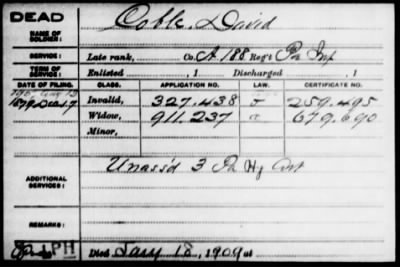 DEAD
NAME OF SOLDIER: Coble, David
SERVICE: Late rank, Co. A. 188 Reg't Pa Inf
TERM OF SERVICE: Enlisted , 1 Discharged , 1
DATE OF FILING. CLASS. APPLICATION NO. LAW. CERTIFICATE NO.
1879 Dec 17 Invalid, 327.438 259.495
Widow, 911.237 679.690
Minor,
ADDITIONAL SERVICES: Unass'd 3 Pa Hy Art
REMARKS:
PH Died Jany 18, 1909 at